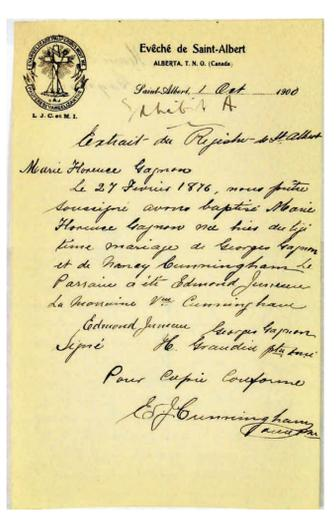 Evêché de Saint-Albert
ALBERTA, T. N. O. (Canada)
L. J. C. et M. I.
Saint-Albert, 1 Oct 1900
Exhibit A
Extrait du Registre de St Albert
Marie Florence Gagnon
Le 27 Février 1876, nous prêtre
soussigné avons baptisé Marie
Florence Gagnon née hier du légi
time mariage de Georges Gagnon
et de Nancy Cunningham Le
Parrain a été Edmond Juneau
La Marraine Vve Cunningham
Edmond Juneau Georges Gagnon
Signé H. Grandin ptre
Pour Copie Conforme
E J Cunningham